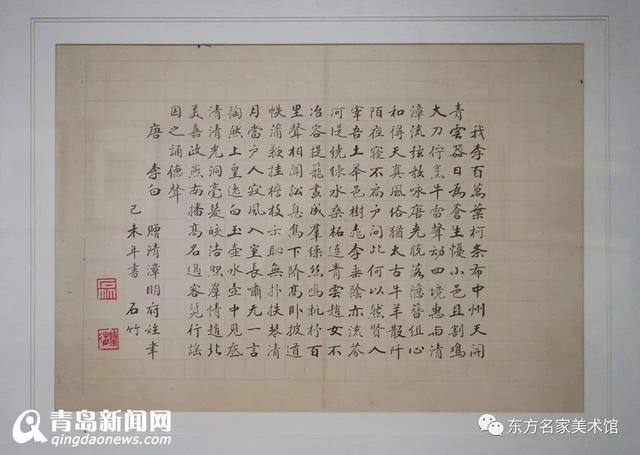 我李百萬葉柯条布中州天開
青雲器日為蒼生憂小邑且割鸡
大刀佇烹牛雷聲动四境惠与清
漳流弦歌咏唐尧脱落隐簪组心
和得天真風俗猶太古牛羊散阡
陌夜寝不扃户问此何以然贤人
宰吾土举邑樹桃李垂陰亦流芬
河堤绕绿水桑柘連青雲趙女不
冶容提籠晝成羣缲丝鳴机杼百
里聲相聞訟息鸟下阶高卧披道
帙蒲鞭挂檐枝示恥無扑抶琴清
月當户人寂風入室長嘯无一言
陶然上皇逸白玉壶冰水壶中見底
清清光洞毫髮皎洁照羣情趙北
美嘉政燕南播高名過客覽行謡
因之誦德聲
唐 李白 贈清漳明府姪聿
己未年書 石竹
青岛新闻网
qingdaonews.com
东方名家美术馆